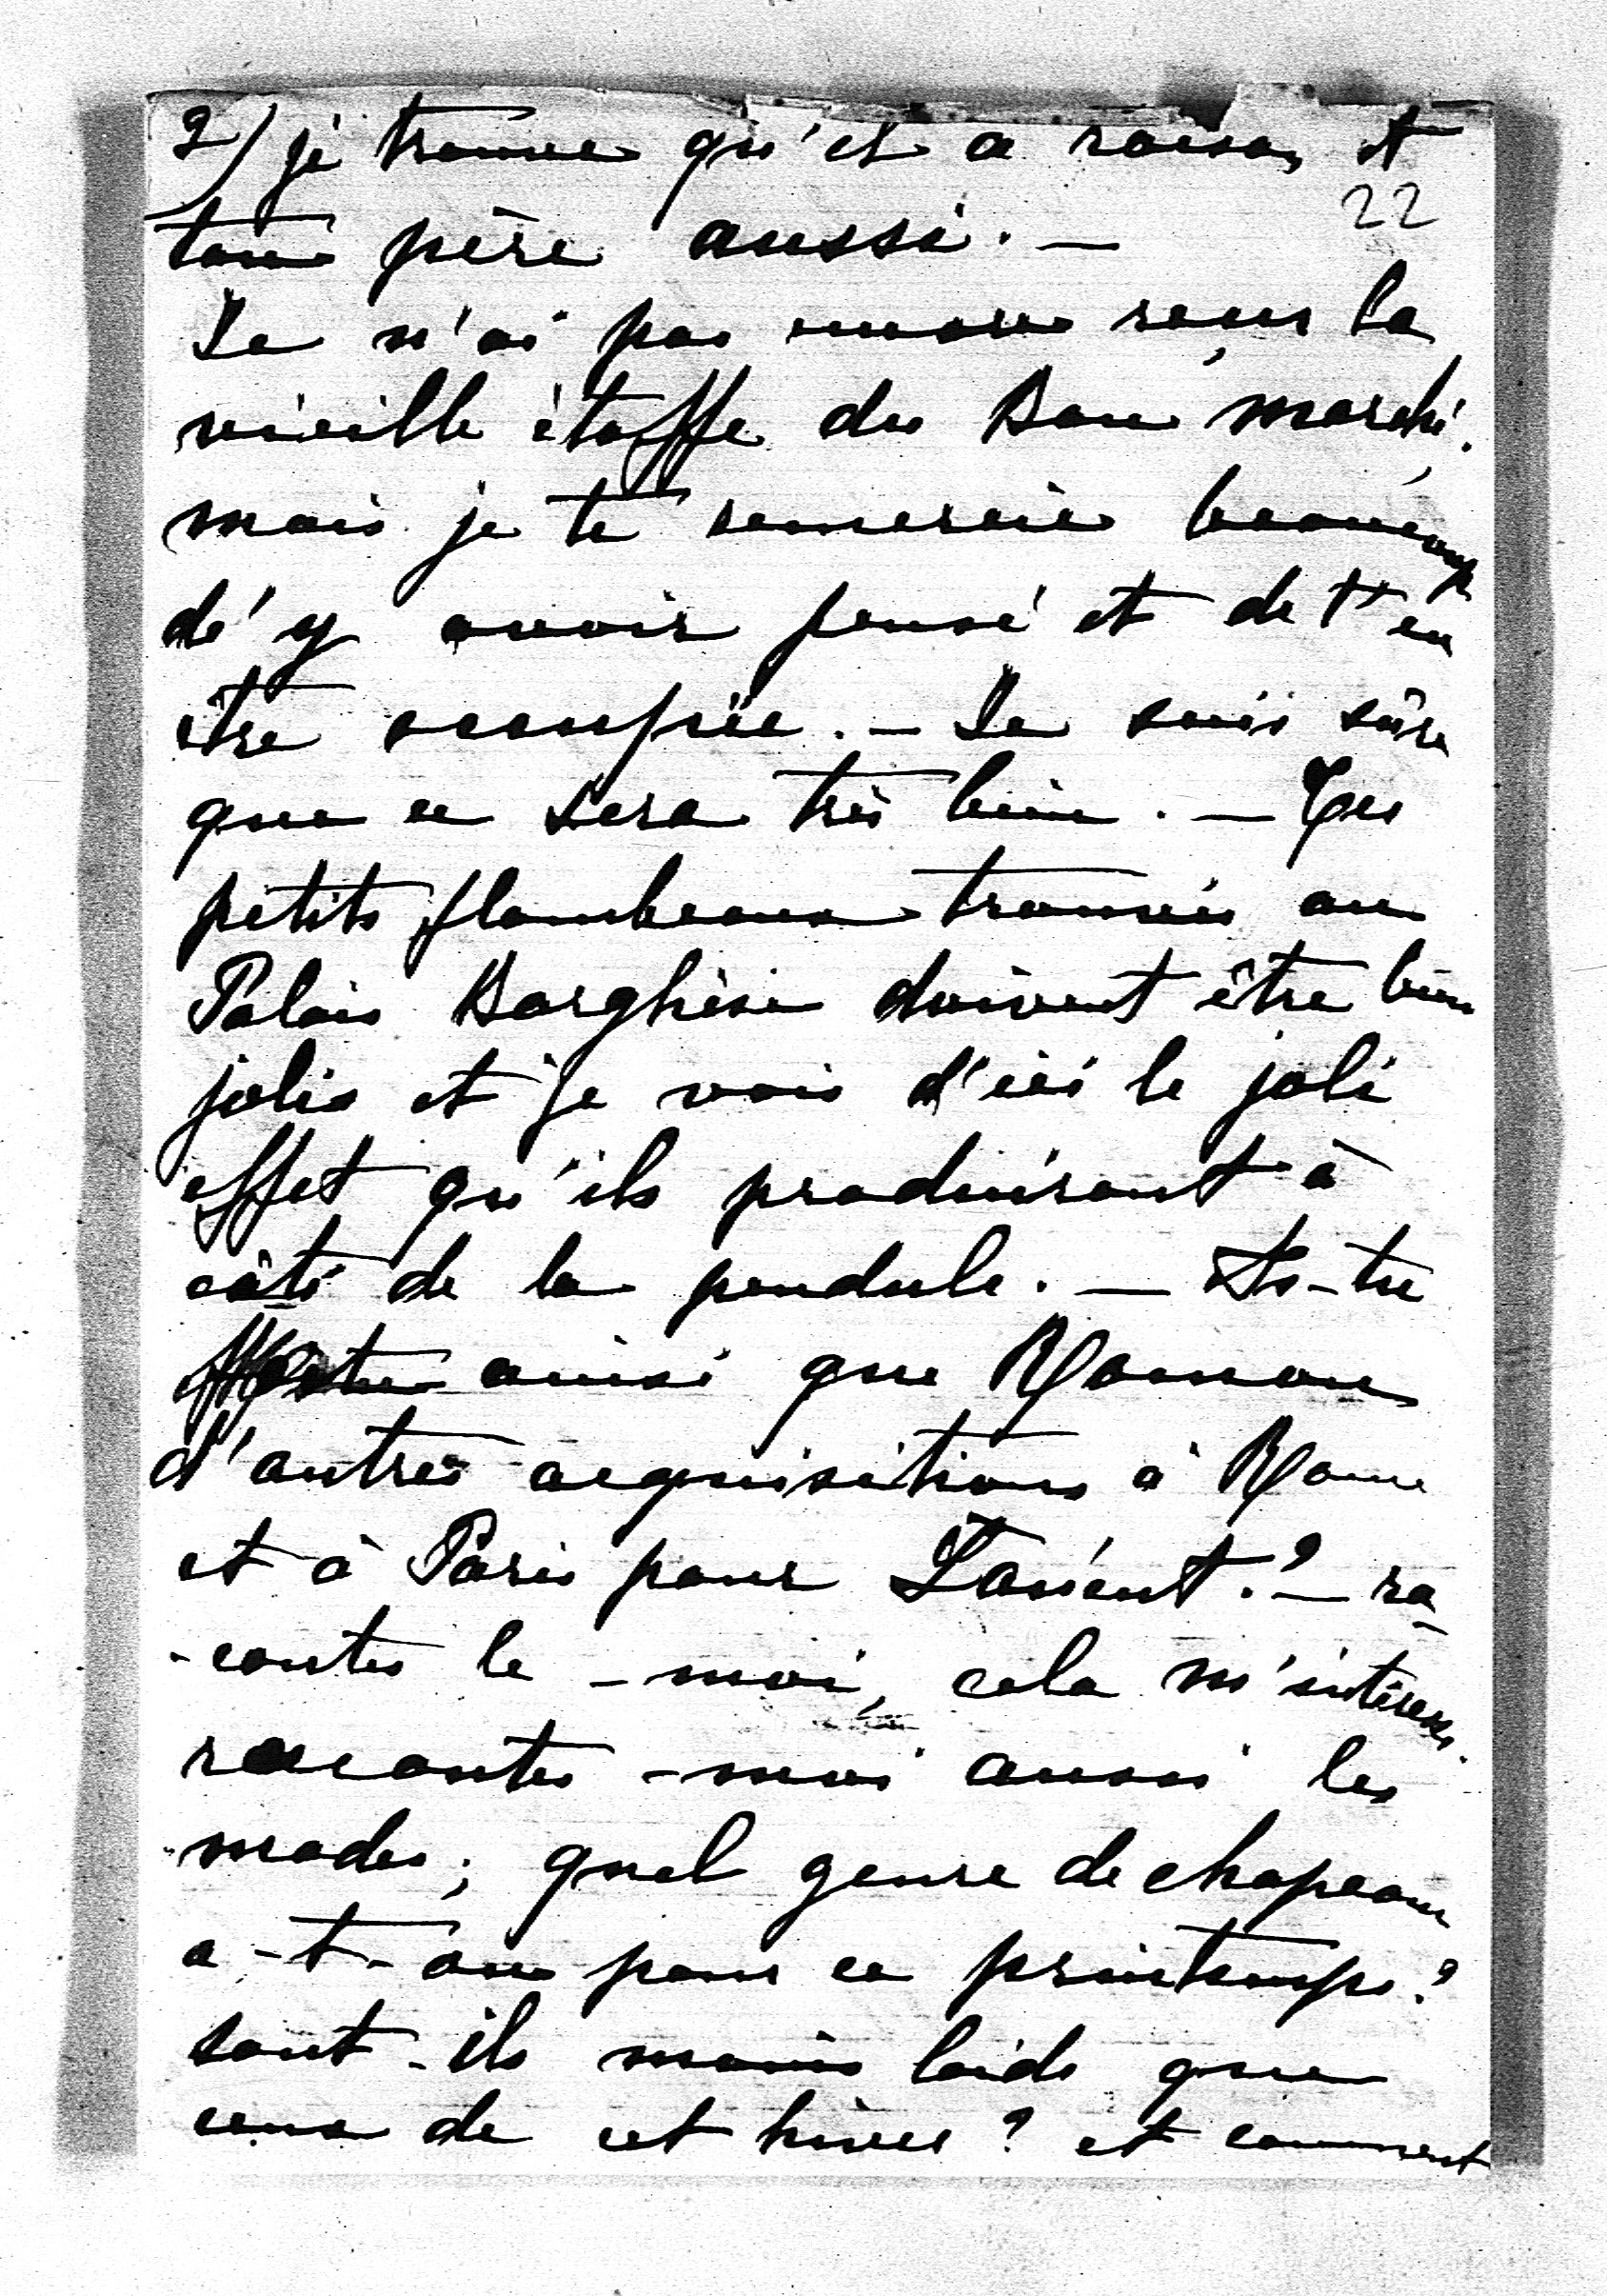 2) je trouve qu'il a raison et
22
ton père aussi. —
Je n'ai pas encore reçu la
vieille étoffe du Bon marché.
mais je te remercie beaucoup
d'y avoir pensé et de t'en
être occupée. — Je suis sûre
que ce sera très bien. — Tes
petits flambeaux trouvés au
Palais Borghèse doivent être bien
jolis et je vois d'ici le joli
effet qu'ils produiront à
côté de la pendule. — As-tu
ainsi que
d'autres acquisitions à Rome
et à Paris pour ? — ra-
-contes le - moi, cela m'intéresse.
racontes - moi aussi les
modes; quel genre de chapeaux
a-t-on pour ce printemps?
sont-ils moins laids que
ceux de cet hiver? et comment